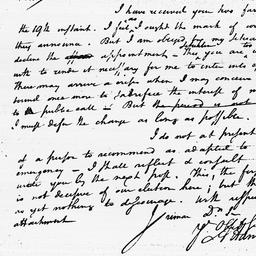 I have received you two fav
the 19th instant. I feel as I ought the mark of con
they announce. But I am obliged by my situation
decline the appointment. This you are
with to render it necessary for me to enter into
There may arrive a crisis when I may conceive
bound once more to sacrifice the interest of my
to public call. But the period is not
I must defer the change as long as possible.
I do not at present
of a person to recommend as adapted to
emergency. I shall reflect & consult
write you by the next post. This the
is not decisive of our election here; but th
as yet nothing to discourage. With respect
attachment
Dr Sir
Yr Obed